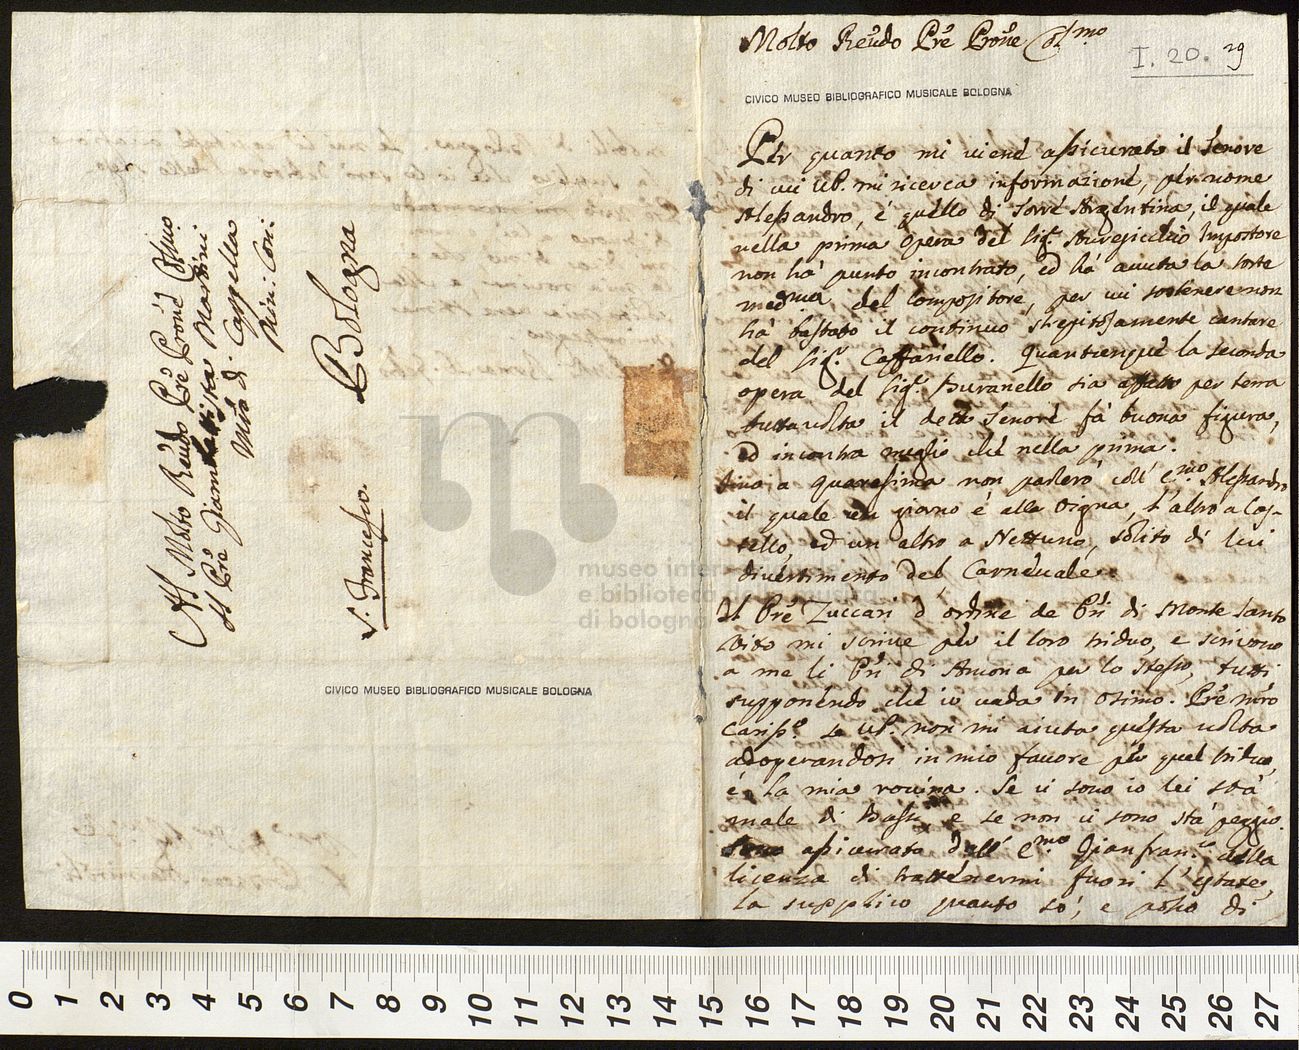 Molto Reṽdo Prẽ Prõne Colmo
I. 20. 29
CIVICO MUSEO BIBLIOGRAFICO MUSICALE BOLOGNA
Per quanto mi viene assicurato il Tenore
di cui V.P. mi ricerca informazione, per nome
Alessandro, è quello di Torre Argentina, il quale
nella prima opera del Sig.r Auresicchio Impostore
non ha' punto incontrato, ed ha' avuta la sorte
medma del Compositore, per cui sostenere non
ha' bastato il continuo strepitosamente cantare
del Sig.r Caffariello. Quantunque la seconda
opera del Sig.r Buranello sia affatto per terra
tutta volta il detto Tenore fa' buona figura,
ed incontra meglio che nella prima.
Sino a quaresima non parlero' coll' Emo Alessandro
il quale un giorno è alla Vigna, l'altro a Cas-
tello, ed un altro a Nettuno, solito di lui
divertimento del Carnevale.
Il Prẽ Zuccari d'ordine de Pri di Monte Santo
Vito mi scrive per il loro triduo, e scrivono
a me li Pri di Ancona per lo stesso, tutti
supponendo che io vada in Osimo. Prẽ nr̃o
cariss.o se V.P. non mi aiuta questa volta
adoperandosi in mio favore per quel triduo,
è la mia rovina. Se ci sono io lei sta'
male di Bassi, e se non ci sono sta' peggio.
assicurato dall' Emo Gianfran.co della
licenza di trattenermi fuori l'estate,
la supplico quanto so', e posso di
Al Molto Reṽdo Prẽ Prõne Colmo
Il Prẽ Giambattista Martini
Mr̃o di Cappella
Min: Con:
Bologna
S. Francesco.
CIVICO MUSEO BIBLIOGRAFICO MUSICALE BOLOGNA
museo internazionale
e biblioteca della musica
di bologna
0 1 2 3 4 5 6 7 8 9 10 11 12 13 14 15 16 17 18 19 20 21 22 23 24 25 26 27